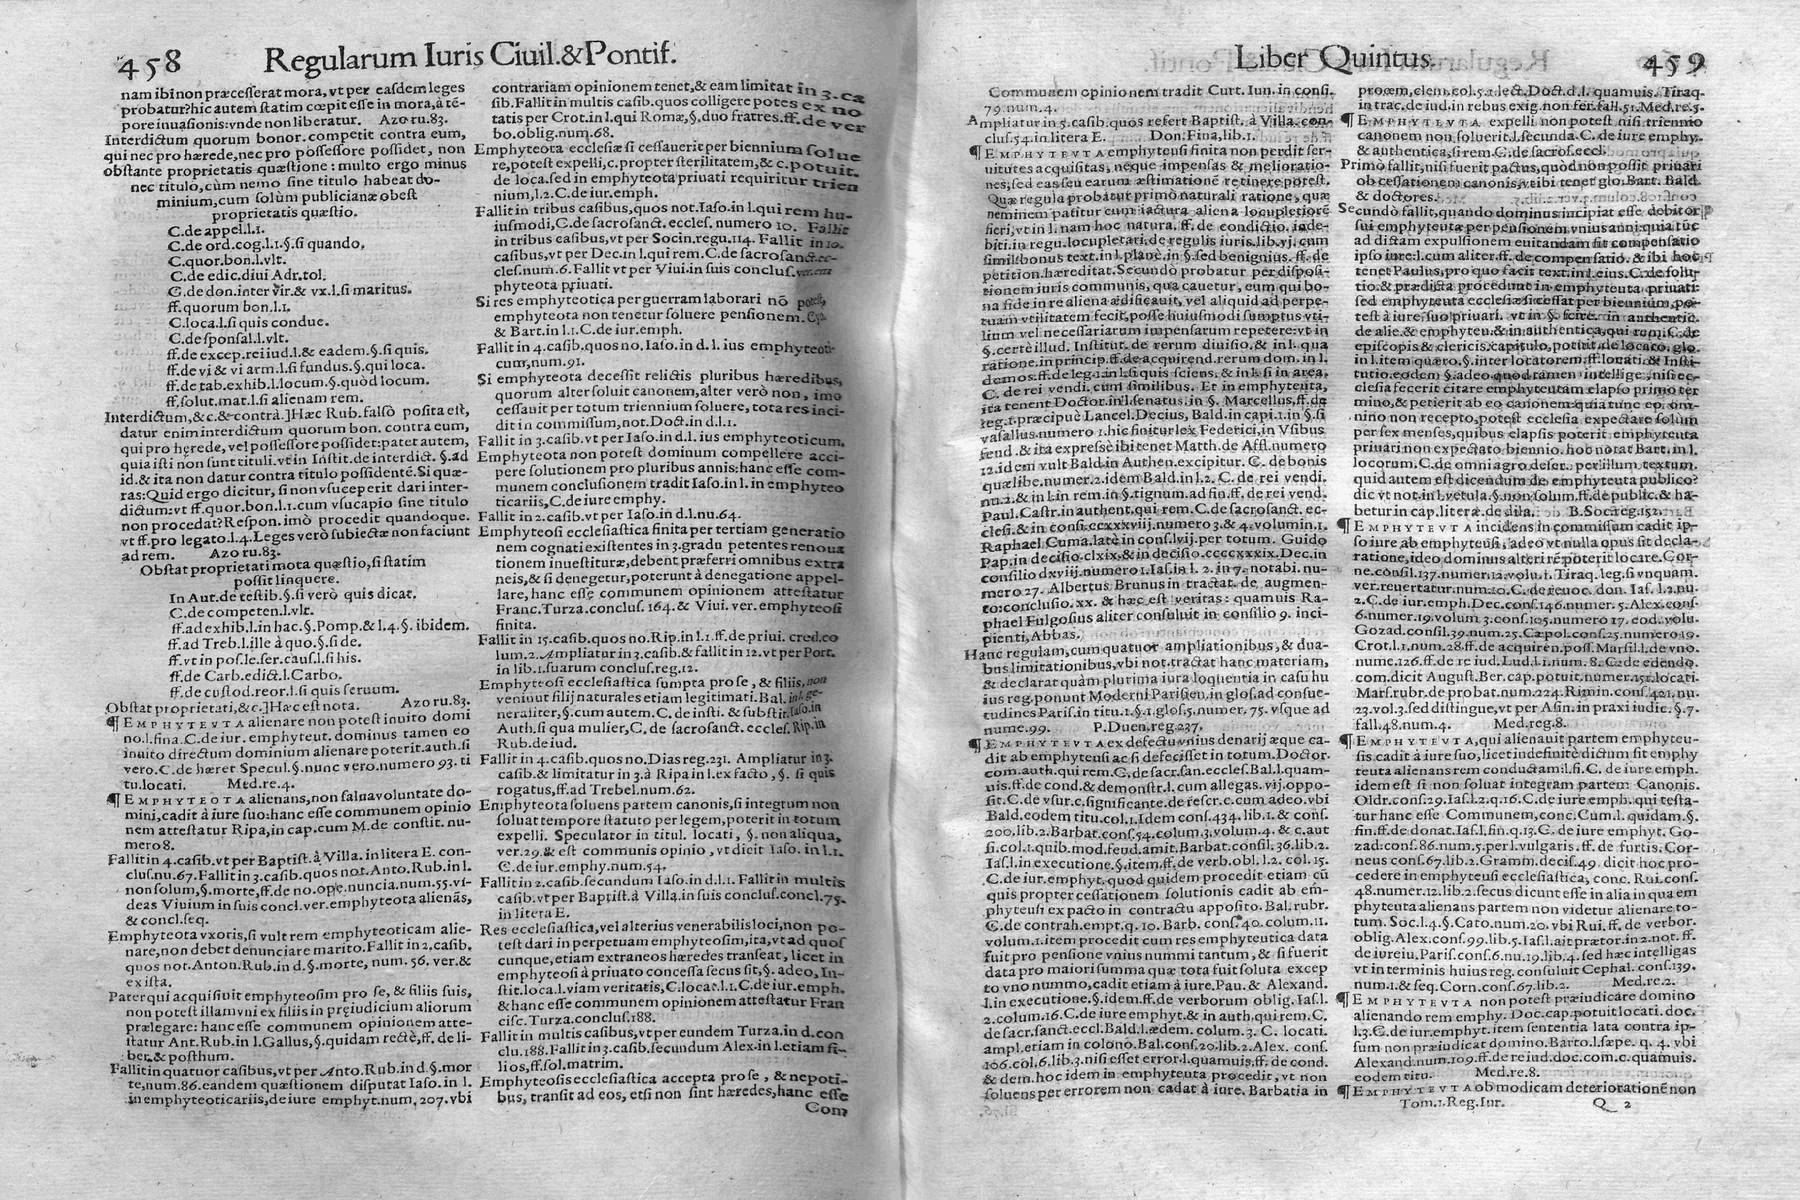 458 Regularum Iuris Ciuil.&Pontif.
nam ibi non præcesserat mora, vt per easdem leges
probatur? hic autem statim cœpit esse in mora, à tē-
pore inuasionis: vnde non liberatur. Azo ru.83.
Interdictum quorum bonor. competit contra eum,
qui nec pro hærede, nec pro possessore possidet, non
obstante proprietatis quæstione: multo ergo minus
nec titulo, cùm nemo sine titulo habeat do-
minium, cum solùm publicianæ obest
proprietatis quæstio.
C.de appel.l.1.
C.de ord.cog.l.1.§.si quando,
C.quor.bon.l.vlt.
C.de edic.diui Adr.tol.
C.de don.inter vir.& vx.l.si maritus.
ff.quorum bon.l.1.
C.loca.l.si quis condue.
C.de sponsal.l.vlt.
ff.de excep.rei iud.l.& eadem.§.si quis.
ff.de vi & vi arm.l.si fundus.§.qui loca.
ff.de tab.exhib.l.locum.§.quòd locum.
ff,solut.mat.l.si alienam rem.
Interdictum,&c.&contrà.]Hæc Rub.falsò posita est,
datur enim interdictum quorum bon. contra eum,
qui pro herede, vel possessore possidet: patet autem,
quia isti non sunt tituli.vt in Instit.de interdict. §.ad
id.& ita non datur contra titulo possidentē. Si quæ-
ras: Quid ergo dicitur, si non vsuceperit dari inter-
dictum: vt ff.quor.bon.l.1.cum vsucapio sine titulo
non procedat? Respon. imò procedit quandoque.
vt ff.pro legato.l.4.Leges verò subiectæ non faciunt
ad rem. Azo ru.83.
Obstat proprietati mota quæstio, si statim
possit linquere.
In Aut.de testib.§.si verò quis dicat.
C.de competen.l.vlt.
ff.ad exhib.l.in hac.§.Pomp.& l.4.§. ibidem.
ff.ad Treb.l.ille à quo.§.si de.
ff.vt in pos.le.ser.caus.l.si his.
ff.de Carb.edict.l.Carbo.
ff.de custod.reor.l.si quis seruum.
Obstat proprietati,&c.]Hæc est nota. Azo ru.83.
¶ EMPHYTEVTA alienare non potest inuito domi
no.l.fina.C.de iur. emphyteut. dominus tamen eo
inuito directum dominium alienare poterit.auth.si
vero.C.de hæret Specul.§.nunc vero.numero 93. ti
tu.locati. Med.re.4.
¶ EMPHYTEOTA alienans,non salua voluntate do-
mini, cadit à iure suo: hanc esse communem opinio
nem attestatur Ripa, in cap.cum M.de constit. nu-
mero 8.
Fallit in 4.casib.vt per Baptist.à Villa. in litera E. con-
clus.nu.67.Fallit in 3.casib.quos not.Anto.Rub.in l.
non solum,§.morte,ff.de no.ope.nuncia.num.55.vi-
deas Viuium in suis concl.ver.emphyteota alienās,
& concl.seq.
Emphyteota vxoris, si vult rem emphyteoticam alie-
nare, non debet denunciare marito. Fallit in 2.casib.
quos not.Anton.Rub.in d.§.morte, num. 56. ver.&
ex ista.
Pater qui acquisiuit emphyteosim pro se, & filiis suis,
non potest illam vni ex filiis in præiudicium aliorum
prælegare: hanc esse communem opinionem atte-
statur Ant.Rub.in l.Gallus,§.quidam rectè,ff.de li-
ber.& posthum.
Fallit in quatuor casibus, vt per Anto.Rub.in d.§.mor
te,num.86.eandem quæstionem disputat Iaso. in l.
in emphyteoticariis,de iure emphyt.num, 207. vbi
contrariam opinionem tenet,& eam limitat in 3.ca
sib. Fallit in multis casib.quos colligere potes ex no
tatis per Crot.in l.qui Romæ,§.duo fratres.ff.de ver
bo.oblig.num.68.
Emphyteota ecclesiæ si cessauerit per biennium solue
re,potest expelli,c.propter sterilitatem,& c.potuit.
de loca.sed in emphyteota priuati requiritur trien
nium,l.2.C.de iur.emph.
Fallit in tribus casibus,quos not.Iaso.in l.qui rem hu-
iusmodi,C.de sacrosanct. eccles. numero 10. Fallit
in tribus casibus,vt per Socin.regu.114. Fallit in 10.
casibus,vt per Dec.in l.qui rem.C.de sacrosanct.ec-
cles.num.6.Fallit vt per Viui.in suis conclus.ver.em
phyteota priuati.
Si res emphyteotica per guerram laborari nō potest,
emphyteota non tenetur soluere pensionem.
& Bart.in l.1.C.de iur.emph.
Fallit in 4.casib.quos no. Iaso.in d.l. ius emphyteoti-
cum,num.91.
Si emphyteota decessit relictis pluribus hæredibus,
quorum alter soluit canonem,alter verò non, imo
cessauit per totum triennium soluere, tota res inci-
dit in commissum,not.Doct.in d.l.1.
Fallit in 3.casib.vt per Iaso.in d.l. ius emphyteoticum.
Emphyteota non potest dominum compellere acci-
pere solutionem pro pluribus annis: hanc esse com-
munem conclusionem tradit Iaso.in l. in emphyteo
ticariis,C.de iure emphy.
Fallit in 2.casib.vt per Iaso.in d.l.nu.64.
Emphyteosi ecclesiastica finita per tertiam generatio
nem cognati existentes in 3.gradu petentes renoua
tionem inuestituræ,debent præferri omnibus extra
neis,& si denegetur,poterunt à denegatione appel-
lare, hanc esse communem opinionem attestatur
Franc.Turza.conclus. 164.& Viui. ver. emphyteosi
finita.
Fallit in 15.casib.quos no.Rip.in l.1.ff.de priui. cred.co
lum.2.Ampliatur in 3.casib.& fallit in 12.vt per Port.
in lib.1.suarum conclus.reg.12.
Emphyteosi ecclesiastica sumpta pro se, & filiis,non
veniunt filij naturales etiam legitimati. Bal. in l.ge-
neraliter,§.cum autem. C. de insti. & substit.Iaso.in
Auth.si qua mulier,C, de sacrosanct. eccles. Rip.in
Rub.de iud.
Fallit in 4.casib.quos no.Dias reg.231. Ampliatur in 3.
casib.& limitatur in 3.à Ripa in l.ex facto, §. si quis
rogatus,ff.ad Trebel.num.62.
Emphyteota soluens partem canonis,si integrum non
soluat tempore statuto per legem,poterit in totum
expelli. Speculator in titul. locati, §. non aliqua,
ver.29.& est communis opinio, vt dicit Iaso. in l.1.
C.de iur.emphy.num.54.
Fallit in 2.casib.secundum Iaso.in d.l.1. Fallit in multis
casib.vt per Baptist.à Villa.in suis conclus.concl.75.
in litera E.
Res ecclesiastica,vel alterius venerabilis loci,non po-
test dari in perpetuam emphyteosim,ita,vt ad quos
cunque,etiam extraneos hæredes transeat, licet in
emphyteosi à priuato concessa secus sit,§. adeo,In-
stit.loca.l.viam veritatis,C.locat.l.1.C.de iur.emph.
& hanc esse communem opinionem attestatur Fran
cisc.Turza.conclus.188.
Fallit in multis casibus,vt per eundem Turza.in d.con
clu.188.Fallit in 3.casib.secundum Alex.in l.etiam fi-
lios,ff.sol.matrim.
Emphyteosis ecclesiastica accepta pro se, & nepoti-
bus, transit ad eos, etsi non sint hæredes,hanc esse
Com
Liber Quintus. 459
Communem opinionem tradit Curt. Iun. in consi.
79.num.4.
Ampliatur in 5.casib.quos refert Baptist. à Villa. con-
clus.54.in litera E. Don.Fina,lib.1.
¶ EMPHYTEVTA emphyteusi finita non perdit ser-
uitutes acquisitas, neque impensas & melioratio-
nes,sed eas seu earum æstimationē retinere potest.
Quæ regula probatur primò naturali ratione, quæ
neminem patitur cum iactura aliena locupletiorē
fieri,vt in l. nam hoc natura. ff. de condictio. inde-
biti.in regu.locupletari.de regulis iuris.lib.vj.cum
similibonus text.in l.planè.in §.sed benignius. ff. de
petition.hæreditat. Secundò probatur per disposi-
tionem iuris communis, qua cauetur, eum qui bo-
na fide in re aliena ædificauit, vel aliquid ad perpe-
tuam vtilitatem fecit,posse huiusmodi sumptus vti-
lium vel necessariarum impensarum repetere: vt in
§.certè illud. Institut. de rerum diuisio.& in l. qua
ratione.in princip.ff.de acquirend.rerum dom.in l.
demos.ff.de leg.1.in l.si quis sciens.& in l.si in area.
C. de rei vendi. cum similibus. Et in emphyteuta,
ita tenent Doctor.in l.senatus.in §. Marcellus.ff.de
leg.1.præcipuè Lancel.Decius, Bald.in capi.1.in §.si
vasallus.numero 1.hic finitur lex Federici,in Vsibus
feud.& ita expressè ibi tenet Matth.de Affl.numero
12.idem vult Bald.in Authen.excipitur. C. de bonis
quæ libe.numer.2.idem Bald.in l.2. C. de rei vendi.
nu.2.& in l.in rem.in §.tignum.ad fin.ff. de rei vend.
Paul. Castr.in authent.qui rem.C.de sacrosanct. ec-
clesi.& in consi.ccxxxvij.numero 3.& 4.volumin.1.
Raphael.Cuma.latè in cons.lvij.per totum. Guido
Pap.in decisio.clxix.& in decisio.ccccxxxix.Dec.in
consilio dxviij.numero 1.Ias.in l. 2. in 7. notabi. nu-
mero 27. Albertus Brunus in tractat. de augmen-
to: conclusio.xx. & hæc est veritas: quamuis Ra-
phael Fulgosius aliter consuluit in consilio 9. inci-
pienti,Abbas.
Hanc regulam,cum quatuor ampliationibus,& dua-
bus limitationibus,vbi not.tractat hanc materiam,
& declarat quàm plurima iura loquentia in casu hu
ius reg.ponunt Moderni Parisien.in glos.ad consue-
tudines Paris.in titu.1.§.1.glos.5.numer. 75. vsque ad
nume.99. P.Duen.reg.237.
¶ EMPHYTEVTA ex defectu vnius denarij æque ca-
dit ab emphyteusi ac si defecisset in totum. Doctor.
com.auth.qui rem.C.de sacr.san.eccles.Bal.l.quam-
uis.ff.de cond.& demonstr.l.cum allegas.vij.oppo-
sit.C.de vsur.c.significante.de rescr.c.cum adeo.vbi
Bald.eodem titu.col.1.Idem cons.434.lib.1. & cons.
200.lib.2.Barbat.cons.54.colum.3.volum.4. & c.aut
si.col.1.quib.mod.feud.amit.Barbat.consil.36.lib.2.
Ias.l.in executione.§.item.ff.de verb.obl.l.2. col. 15.
C.de iur.emphyt.quod quidem procedit etiam cū
quis propter cessationem solutionis cadit ab em-
phyteusi ex pacto in contractu apposito. Bal. rubr.
C.de contrah.empt.q.10. Barb. cons.40. colum.11.
volum.1.item procedit cum res emphyteutica data
fuit pro pensione vnius nummi tantum, & si fuerit
data pro maiori summa quæ tota fuit soluta excep
to vno nummo, cadit etiam à iure. Pau.& Alexand.
l.in executione.§.idem.ff.de verborum oblig. Ias.l.
2.colum.16.C.de iure emphyt.& in auth.qui rem.C.
de sacr.sanct.eccl.Bald.l.ædem. colum.3. C. locati.
ampl.etiam in colono.Bal.cons.20.lib.2.Alex. cons.
106.col.6.lib.3.nisi esset error.l.quamuis.ff. de cond.
& dem.hoc idem in emphyteuta procedit, vt non
soluens per errorem non cadat à iure. Barbatia in
proœm,clem.col.5.1.lect.Doct.d.l.quamuis.Tiraq.
in trac.de iud.in rebus exig.non fer.fall.51.Med.re.5.
¶ EMPHYTEVTA expelli non potest nisi triennio
canonem non soluerit.l.secunda.C.de iure emphy.
& authentica,si rem.C.de sacros.eccl.
Primò fallit,nisi fuerit pactus,quòd non possit priuari
ob cessationem canonis,vti ibi tenet glo. Bart. Bald.
& doctores.
Secundò fallit,quando dominus incipiat esse debitor
sui emphyteutæ per pensionem vnius anni: quia tūc
ad dictam expulsionem euitandam fit compensatio
ipso iure: l.cum aliter.ff.de compensatio. & ibi hoc
tenet Paulus,pro quo facit text.in l.eius.C.de solu-
tio.& prædicta procedunt in emphyteuta priuati:
sed emphyteuta ecclesiæ si cessat per biennium,po-
test à iure suo priuari. vt in §. scire. in authentic.
de alie.& emphyteu.& in authentica,qui rem.C.de
episcopis & clericis.capitulo,potuit.de locato. glo.
in l.item quæro.§.inter locatorem.ff.locati.& Insti-
tutio.eodem §.adeo.quod tamen intellige, nisi ec-
clesia fecerit citare emphyteutam elapso primo ter
mino,& petierit ab eo canonem: quia tunc eo om-
nino non recepto,potest ecclesia expectare solum
per sex menses,quibus elapsis poterit emphyteuta
priuari non expectato biennio. hoc notat Bart. in l.
locorum.C.de omni agro deser.: per illum textum.
quid autem est dicendum de emphyteuta publico?
dic vt not.in l.vetula.§.non solum.ff.de public.& ha-
betur in cap.literæ.de dila. B.Soc.reg.152.
¶ EMPHYTEVTA incidens in commissum cadit ip-
so iure ab emphyteusi, adeo vt nulla opus sit decla-
ratione,ideo dominus alteri rē poterit locare. Cor-
ne.consil.137.numer.12.volu.1. Tiraq.leg.si vnquam.
ver.reuertatur.num.10. C. de reuoc. don. Ias. l.2.nu.
2.C.de iur.emph.Dec.cons.146.numer.5.Alex.cons.
6.numer.19.volum.3.cons.105.numero 17. cod. volu.
Gozad.consil.39.num.25.Cæpol.cons.25.numero 19.
Crot.l.1.num.28.ff.de acquiren.poss. Marsil.l.de vno.
nume.126.ff.de re iud.Lud.l.1.num.8.C.de edendo.
com.dicit August.Ber.cap.potuit.numer.151.locati.
Mars.rubr.de probat.num.224.Rimin.cons.421.nu.
23.vol.3.sed distingue,vt per Asin.in praxi iudic.§.7.
fall.48.num.4. Med.reg.8.
¶ EMPHYTEVTA,qui alienauit partem emphyteu-
sis cadit à iure suo,licet indefinitè dictum sit emphy
teuta alienans rem conductam: l.fi.C.de iure emph.
idem est si non soluat integram partem Canonis.
Oldr.cons.29.Ias.l.2.q.16.C.de iure emph. qui testa-
tur hanc esse Communem,conc.Cum.l.quidam.§.
fin.ff.de donat.Ias.l.fin.q.13.C. de iure emphyt. Go-
zad.cons.86.num.5.per l.vulgaris.ff. de furtis. Cor-
neus cons.67.lib.2.Gramm.decis.49.dicit hoc pro-
cedere in emphyteusi ecclesiastica, conc.Rui.cons.
48.numer.12.lib.2.secus dicunt esse in alia in qua em
phyteuta alienans partem non videtur alienare to-
tum. Soc.l.4.§.Cato.num.20.vbi Rui.ff. de verbor.
oblig.Alex.cons.99.lib.5.Ias.l.ait prætor.in 2.not.ff.
de iureiu.Paris.cons.6.nu.19.lib.4.sed hæc intelligas
vt in terminis huius reg.consuluit Cephal.cons.139.
num.1.& seq.Corn.cons.67.lib.2. Med.re.2.
¶ EMPHYTEVTA non potest præiudicare domino
alienando rem emphy. Doc.cap.potuit locati.doc.
l.3.C.de iur.emphyt.item sententia lata contra ip-
sum non præiudicat domino. Barto.l.sæpe. q. 4. vbi
Alexand.num.109.ff.de re iud.doc.com.c.quamuis.
eodem titu. Med.re.8.
¶ EMPHYTEVTA ob modicam deteriorationē non
Tom.1.Reg.Iur. Q 2